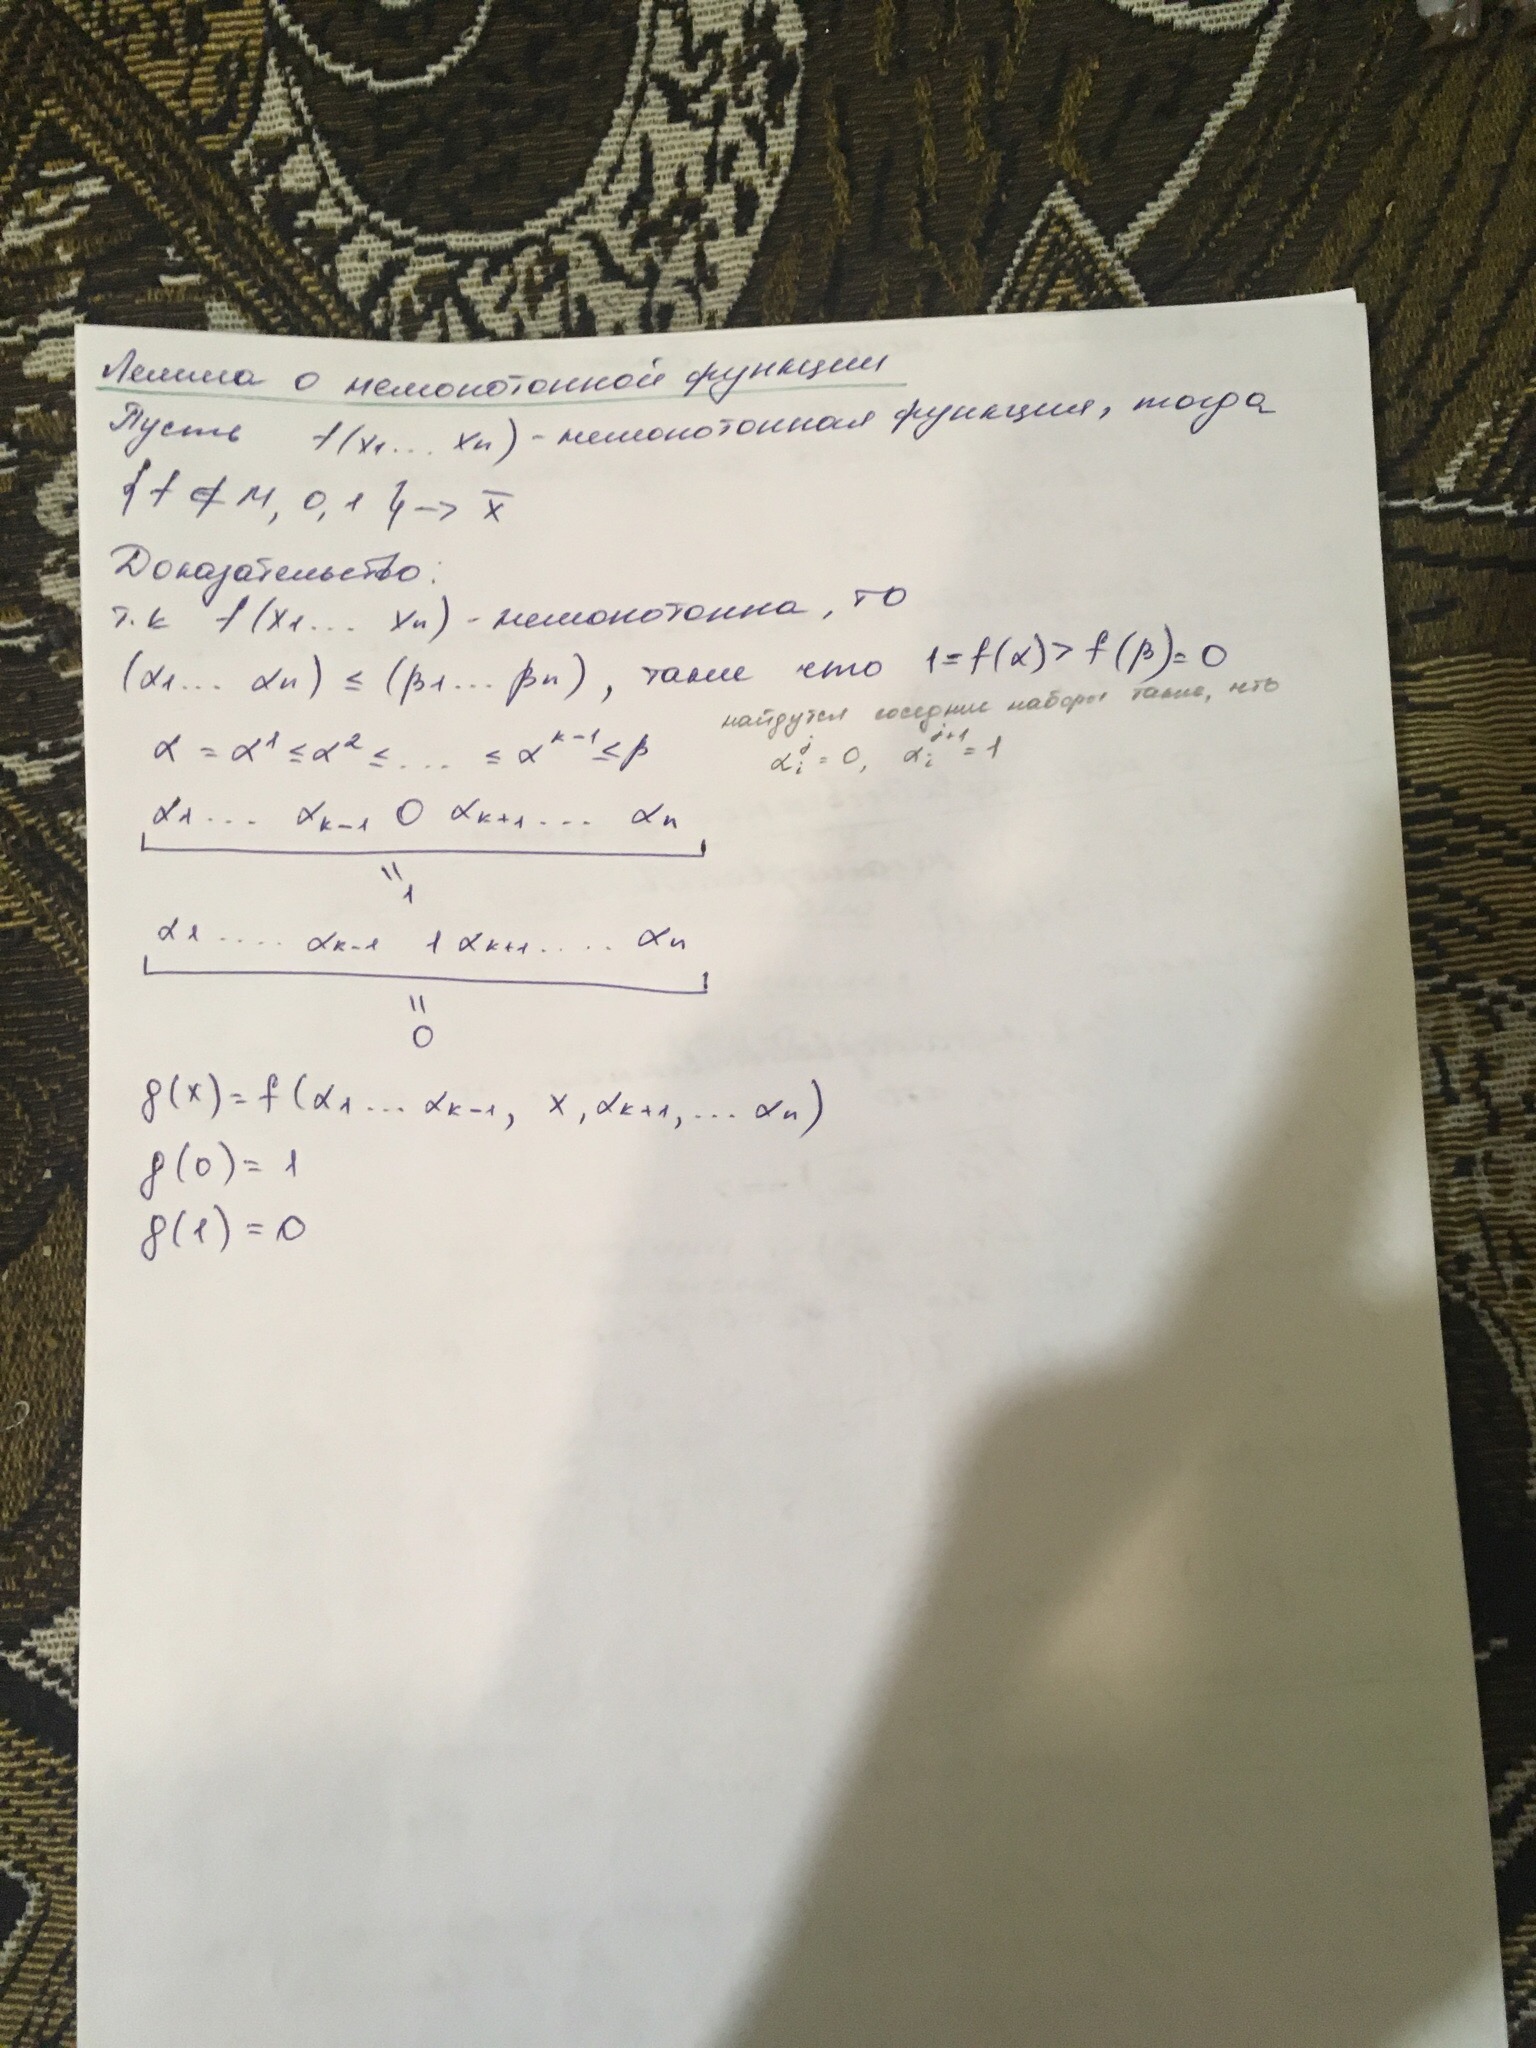 Лемма о немонотонной функции
Пусть f(x₁... xₙ) - немонотонная функция, тогда
{f ∉ M, 0, 1} -> x̄
Доказательство:
т.к f(x₁... xₙ) - немонотонна, то
(α₁... αₙ) ≤ (β₁... βₙ), такие что 1 = f(α) > f(β) = 0
найдутся соседние наборы такие, что
α = α¹ ≤ α² ≤ ... ≤ αᵏ⁻¹ ≤ β
αᵢʲ = 0, αᵢʲ⁺¹ = 1
α₁... αₖ₋₁ 0 αₖ₊₁... αₙ
=
1
α₁.... αₖ₋₁ 1 αₖ₊₁..... αₙ
=
0
g(x) = f(α₁... αₖ₋₁, x, αₖ₊₁,... αₙ)
g(0) = 1
g(1) = 0